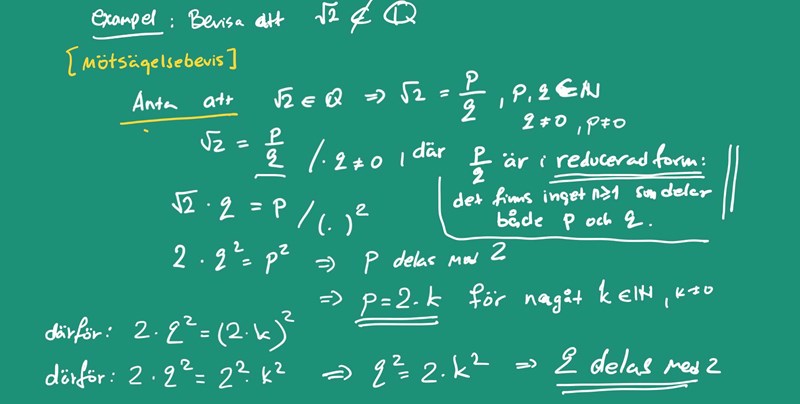 Exempel: Bevisa att √2 ∉ ℚ
[Mötsägelsebevis]
Anta att √2 ∈ ℚ ⇒ √2 = p/q, p, q ∈ ℕ
q ≠ 0, p ≠ 0
√2 = p/q /· q ≠ 0, där p/q är i reducerad form:
det finns inget n≥1 som delar
både p och q.
√2 · q = p /(.)²
2 · q² = p² ⇒ p delas med 2
⇒ p = 2·k för något k ∈ ℕ, k≠0
därför: 2·q² = (2·k)²
därför: 2·q² = 2²·k² ⇒ q² = 2·k² ⇒ q delas med 2